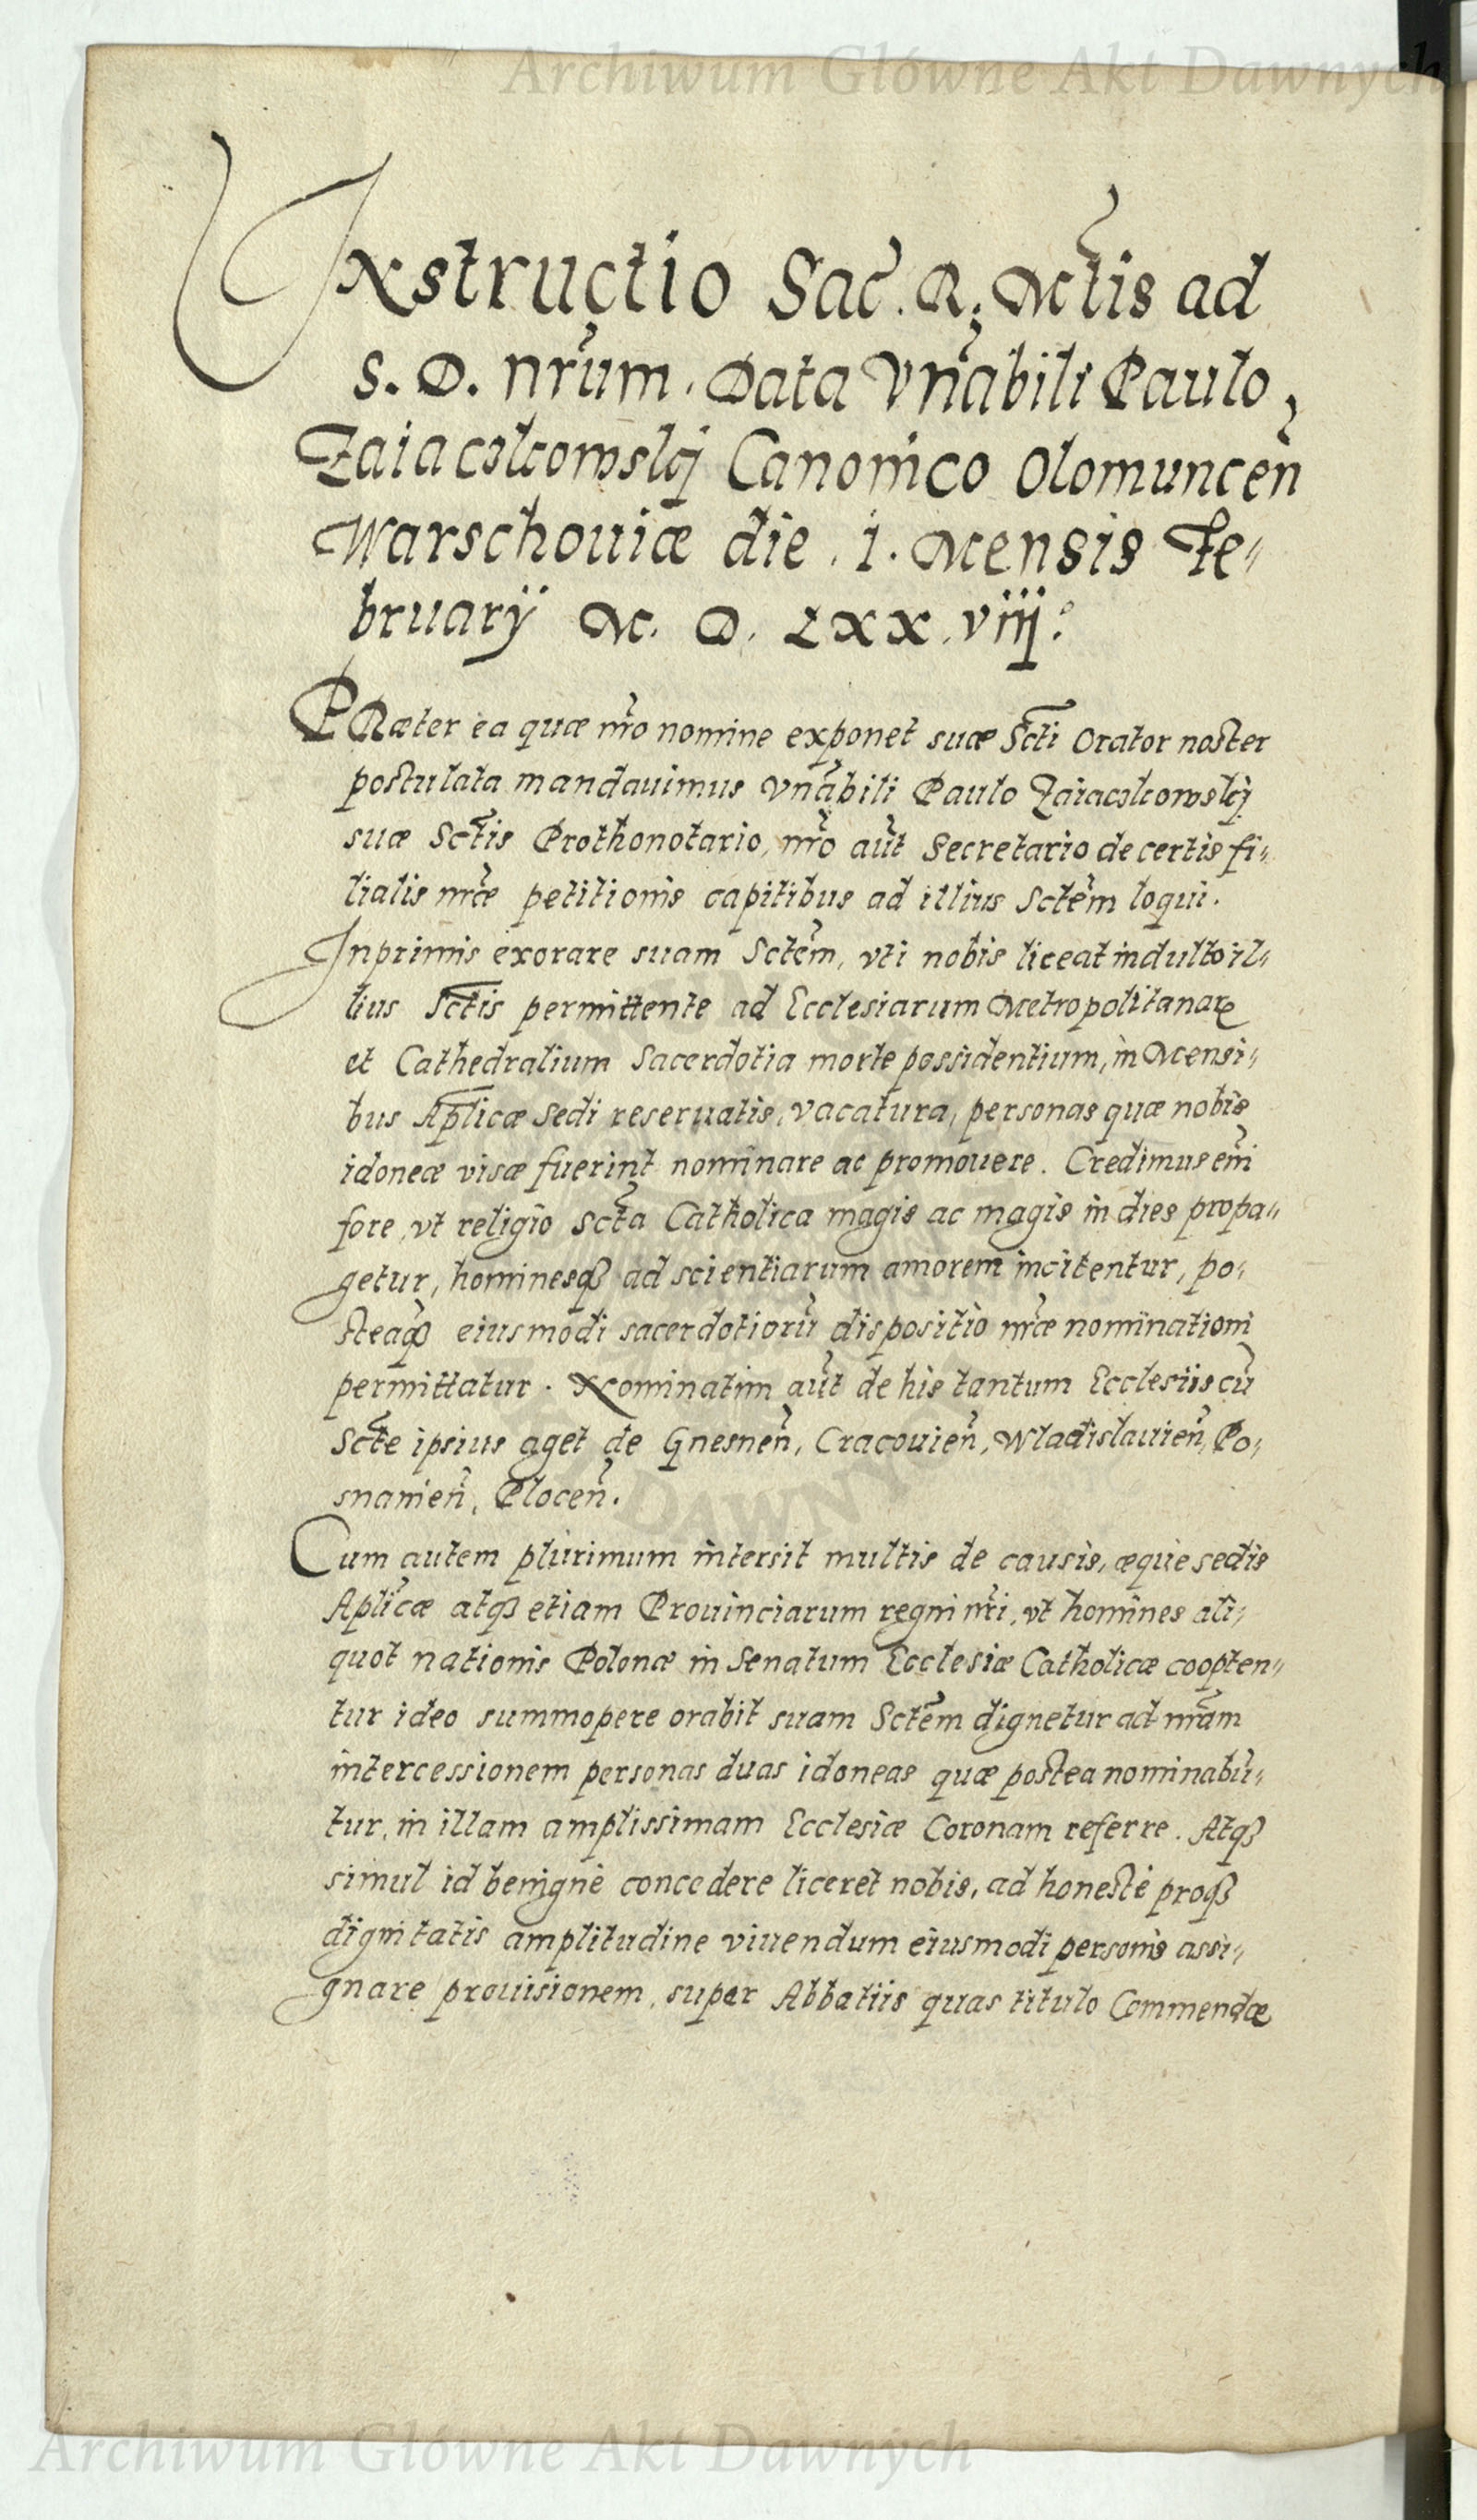 Archiwum Główne Akt Dawnych
INstructio Sac̃. R. Mtĩs ad
S. D. nrũm. Data Vnãbili Paulo
Zaiaczkowskj Canonico Olomunceñ
Warschouiæ die . 1. Mensis Fe„
bruarij M. D. LXX. viij:
PRæter ea quæ nrõ nomine exponet suæ Sctĩ Orator noster
postulata mandauimus vnãbili Paulo Zaiaczkowskj
suæ Sctĩs Prothonotario, nrõ aũt Secretario de certis fi„
lialis nræ̃ petitionis capitibus ad illius Sctẽm loqui.
Inprimis exorare suam Sctẽm, vti nobis liceat indulto il„
lius Sctĩs permittente ad Ecclesiarum Metropolitanarꝝ
et Cathedralium Sacerdotia morte possidentium, in Mensi„
bus Apl̃icæ Sedi reseruatis, vacatura, personas quæ nobis
idoneæ visæ fuerint nominare ac promouere. Credimus em̃
fore, vt religio Sctã Catholica magis ac magis in dies propa„
getur, hominesqȝ ad scientiarum amorem incitentur, po„
steaqȝ̃ eiusmodi sacerdotiorũ dispositio nræ̃ nominationi
permittatur. Nominatim aũt de his tantum Ecclesiis cũ
Sctẽ ipsius aget de Gnesneñ, Cracouieñ, Wladislauieñ, Po„
snanieñ, Ploceñ.
Cum autem plurimum intersit multis de causis, æquè sedis
Apl̃icæ atqȝ etiam Prouinciarum regni nrĩ, vt homines ali„
quot nationis Polonæ in Senatum Ecclesiæ Catholicæ coopten„
tur ideo summopere orabit suam Sctẽm dignetur ad nrãm
intercessionem personas duas idoneas quæ postea nominabũ„
tur, in illam amplissimam Ecclesiæ Coronam referre. Atqȝ
simul id benignè concedere liceret nobis, ad honestè proqȝ
dignitatis amplitudine viuendum eiusmodi personis assi„
gnare prouisionem, super Abbatiis quas titulo Commendæ
Archiwum Główne Akt Dawnych